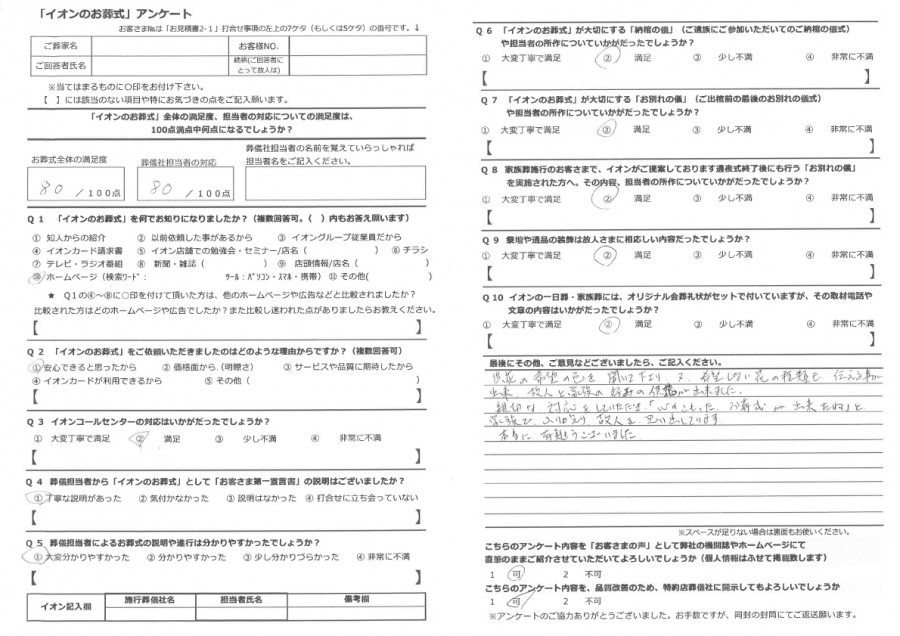 「イオンのお葬式」アンケート
お客さま№は「お見積書2-1」打合せ事項の左上の7ケタ（もしくは5ケタ）の番号です。↓
ご葬家名 お客様NO.
ご回答者氏名 続柄(ご回答者にとって故人は)
※当てはまるものに○印をお付け下さい。
【　】には該当のない項目や特にお気づきの点をご記入願います。
「イオンのお葬式」全体の満足度、担当者の対応についての満足度は、
100点満点中何点になるでしょうか？
お葬式全体の満足度 葬儀社担当者の対応 葬儀社担当者の名前を覚えていらっしゃれば
担当者名をご記入ください。
80 /100点 80 /100点
Q 1 「イオンのお葬式」を何でお知りになりましたか？（複数回答可。（　）内もお答え願います）
① 知人からの紹介 ② 以前依頼した事があるから ③ イオングループ従業員だから
④ イオンカード請求書 ⑤ イオン店舗での勉強会・セミナー/店名（　） ⑥ チラシ
⑦ テレビ・ラジオ番組 ⑧ 新聞・雑誌（　） ⑨ 店頭情報/店名（　）
⑩ ホームページ（検索ワード： ツール：パソコン・スマホ・携帯） ⑪ その他(　)
★ Q1の④～⑧に○印を付けて頂いた方は、他のホームページや広告などと比較されましたか？
比較された方はどのホームページや広告でしたか？また比較し迷われた点がありましたらお教えください。
【　】
Q 2 「イオンのお葬式」をご依頼いただきましたのはどのような理由からですか？（複数回答可）
① 安心できると思ったから ② 価格面から（明瞭さ） ③ サービスや品質に期待したから
④ イオンカードが利用できるから ⑤ その他（
【　】
Q 3 イオンコールセンターの対応はいかがだったでしょうか？
① 大変丁寧で満足 ② 満足 ③ 少し不満 ④ 非常に不満
【　】
Q 4 葬儀担当者から「イオンのお葬式」として「お客さま第一宣言書」の説明はございましたか？
① 丁寧な説明があった ② 気付かなかった ③ 説明はなかった ④ 打合せに立ち会っていない
【　】
Q 5 葬儀担当者によるお葬式の説明や進行は分かりやすかったでしょうか？
① 大変分かりやすかった ② 分かりやすかった ③ 少し分かりづらかった ④ 非常に不満
【　】
イオン記入欄 施行葬儀社名 担当者氏名 備考欄
Q 6 「イオンのお葬式」が大切にする「納棺の儀」（ご遺族にご参加いただいてのご納棺の儀式）
や担当者の所作についていかがだったでしょうか？
① 大変丁寧で満足 ② 満足 ③ 少し不満 ④ 非常に不満
【　】
Q 7 「イオンのお葬式」が大切にする「お別れの儀」（ご出棺前の最後のお別れの儀式）
や担当者の所作についていかがだったでしょうか？
① 大変丁寧で満足 ② 満足 ③ 少し不満 ④ 非常に不満
【　】
Q 8 家族葬施行のお客さまで、イオンがご提案しております通夜式終了後にも行う「お別れの儀」
を実施された方へ。その内容、担当者の所作についていかがだったでしょうか？
① 大変丁寧で満足 ② 満足 ③ 少し不満 ④ 非常に不満
【　】
Q 9 祭壇や遺品の装飾は故人さまに相応しい内容だったでしょうか？
① 大変丁寧で満足 ② 満足 ③ 少し不満 ④ 非常に不満
【　】
Q 10 イオンの一日葬・家族葬には、オリジナル会葬礼状がセットで付いていますが、その取材電話や
文章の内容はいかがだったでしょうか？
① 大変丁寧で満足 ② 満足 ③ 少し不満 ④ 非常に不満
【　】
最後にその他、ご意見などございましたら、ご記入ください。
の希望の色を聞いて下さり 又、希望しない花の種類も、伝える事が
出来 故人と最後の お別れ が出来ました。
親切な対応をしていただき「心のこもった、お葬式が出来たね」と
家族で ふりかえり 故人を 思い出しています。
本当に 有難うございました。
※スペースが足りない場合は裏面もお使いください。
こちらのアンケート内容を「お客さまの声」として弊社の機関誌やホームページにて
直筆のままご紹介させていただいてよろしいでしょうか（個人情報はふせて掲載致します）
1 可 2 不可
こちらのアンケート内容を、品質改善のため、特約店葬儀社に開示してもよろしいでしょうか
1 可 2 不可
※アンケートのご協力ありがとうございました。お手数ですが、同封の封筒にてご返送願います。